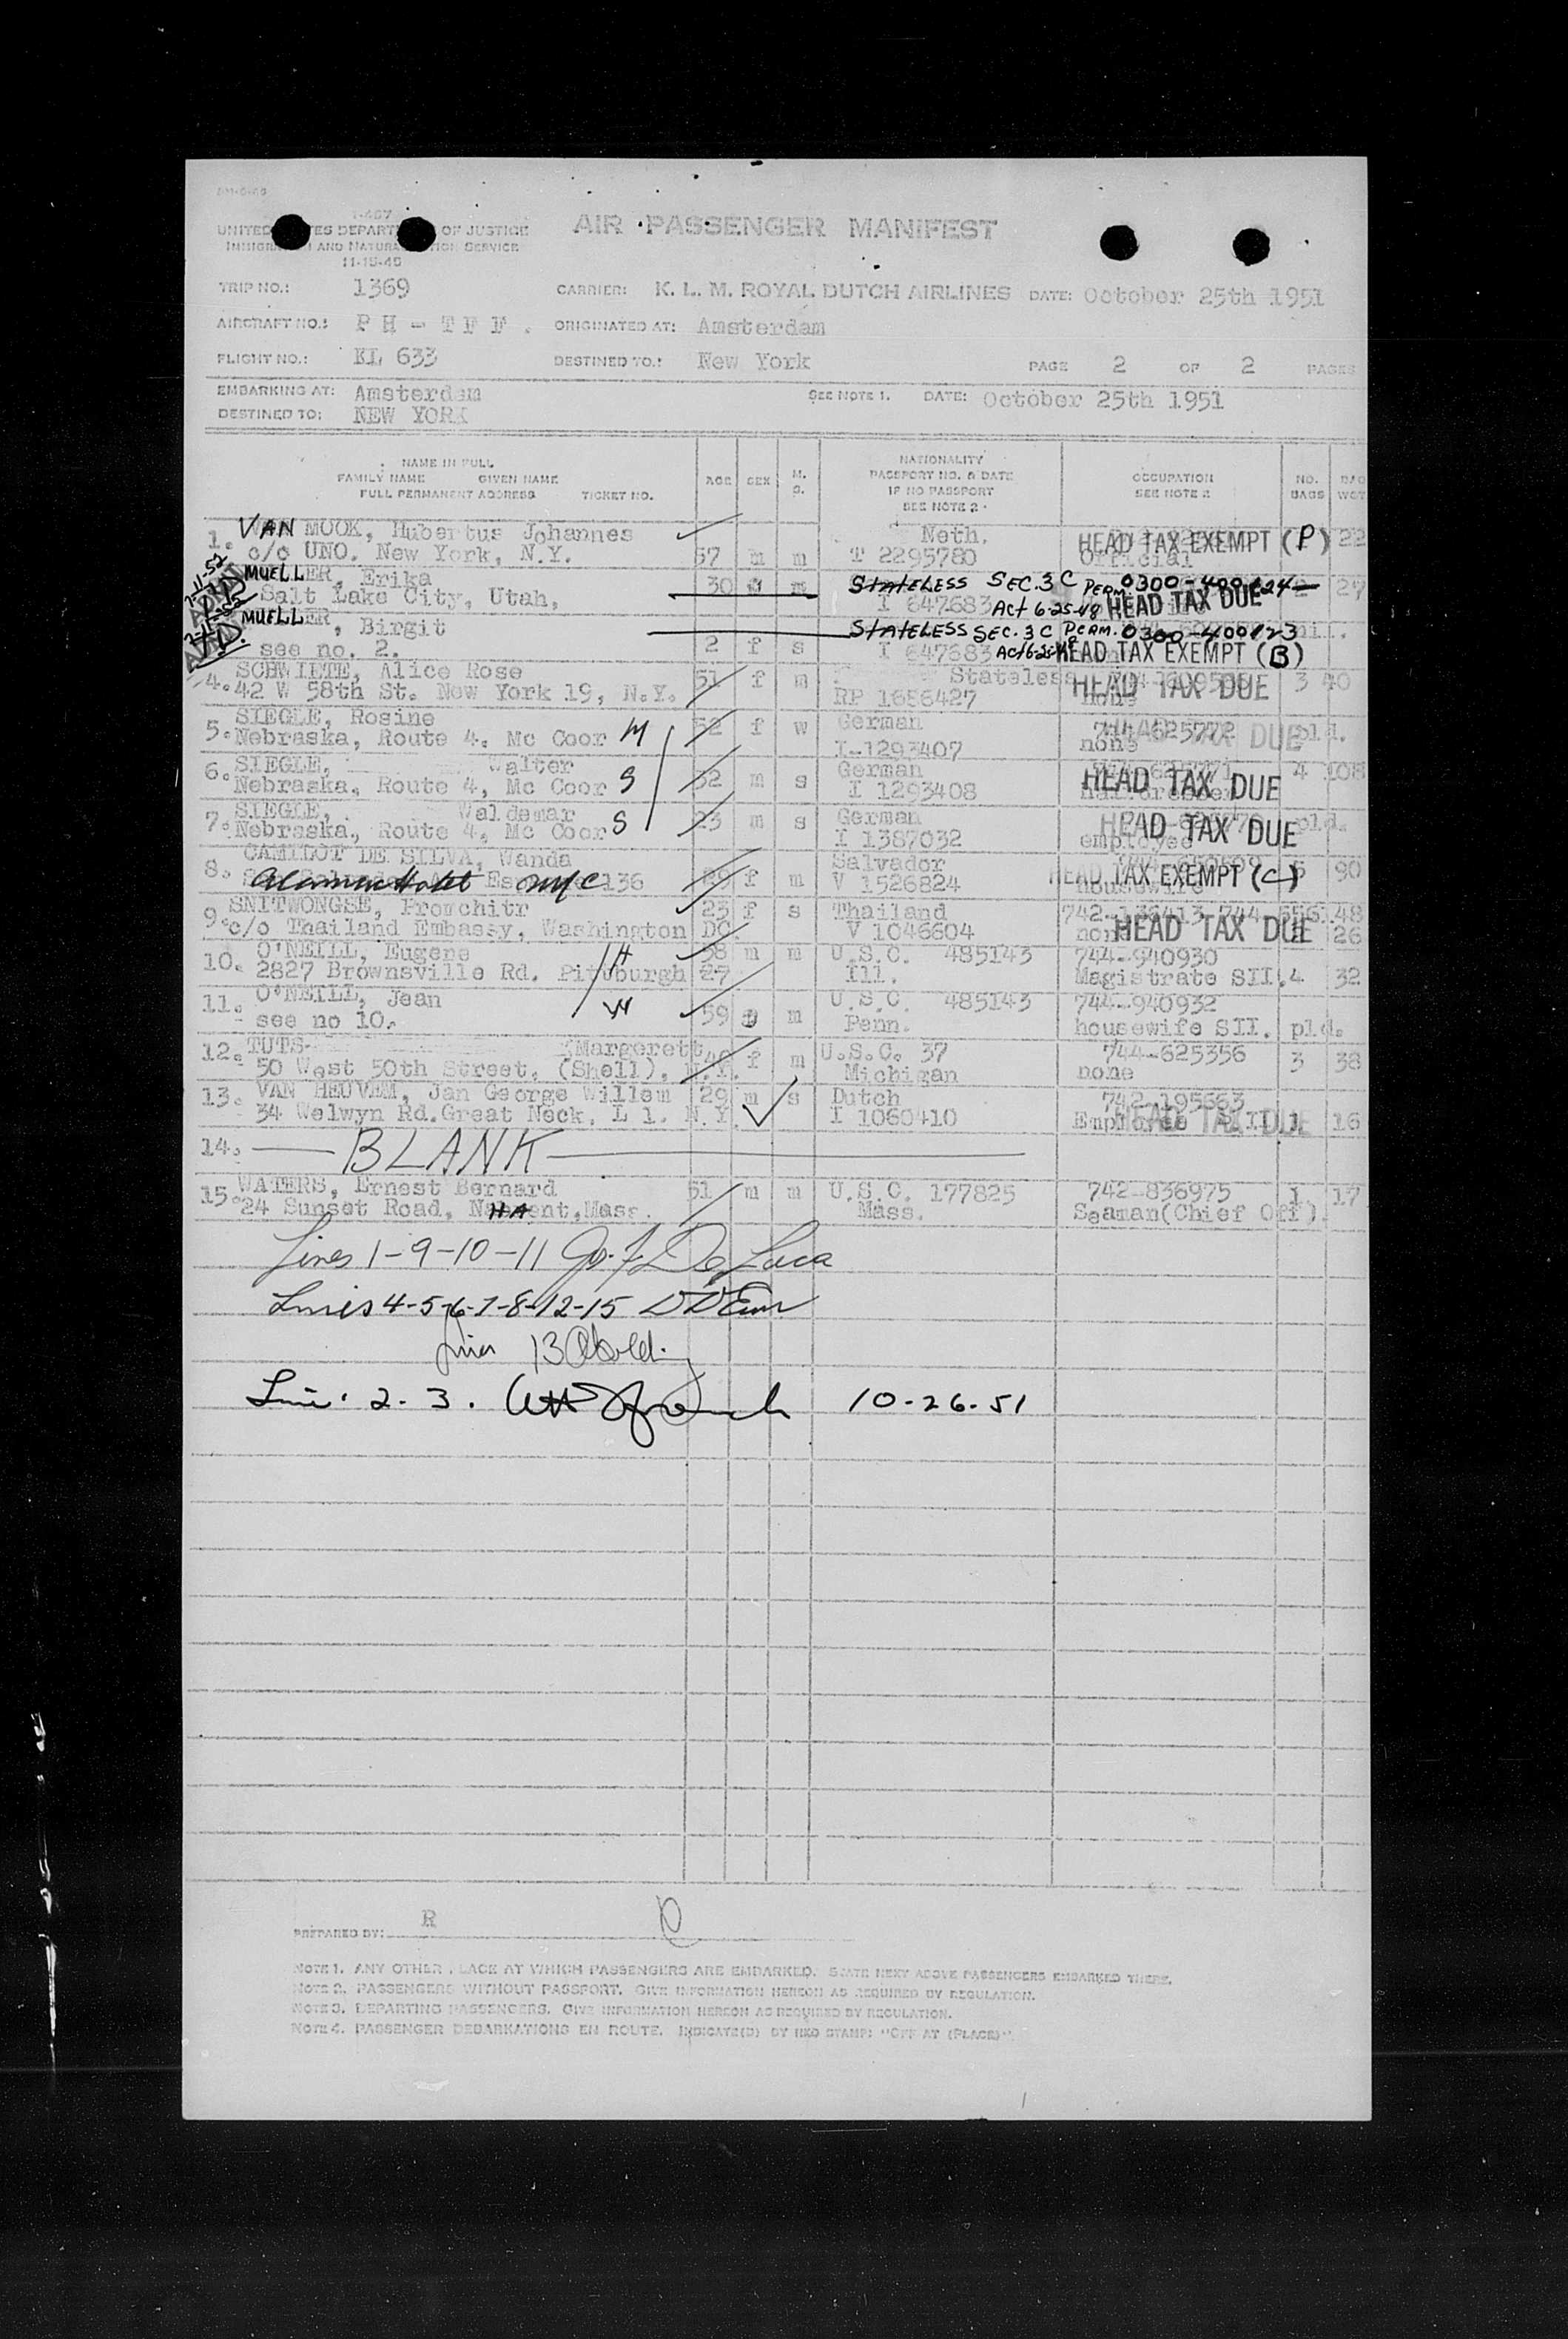 I-467
UNITED STATES DEPARTMENT OF JUSTICE
IMMIGRATION AND NATURALIZATION SERVICE
11-15-45
AIR PASSENGER MANIFEST
TRIP NO.: 1369 CARRIER: K. L. M. ROYAL DUTCH AIRLINES DATE: October 25th 1951
AIRCRAFT NO.: PH - TFF. ORIGINATED AT: Amsterdam
FLIGHT NO.: KL 633 DESTINED TO.: New York PAGE 2 OF 2 PAGES
EMBARKING AT: Amsterdam SEE NOTE 1. DATE: October 25th 1951
DESTINED TO: NEW YORK
NAME IN FULL
FAMILY NAME GIVEN NAME
FULL PERMANENT ADDRESS TICKET NO.
AGE SEX M. S.
NATIONALITY
PASSPORT NO. & DATE
IF NO PASSPORT
SEE NOTE 2
OCCUPATION
SEE NOTE 2
NO. BAGS
BAG WGT
1. VAN MOOK, Hubertus Johannes Neth. HEAD TAX EXEMPT (P) 22
c/o UNO. New York, N.Y. 57 m m T 2295780 Official
MUELLER, Erika 30 m STATELESS SEC. 3 C PERM. 0300-400124 27
Salt Lake City, Utah, I 647683 Act 6-25-48 HEAD TAX DUE
MUELLER, Birgit STATELESS SEC. 3 C PERM. 0300-400123
see no. 2. 2 f s I 647683 HEAD TAX EXEMPT (B)
4. SCHWILTE, Alice Rose 51 f m Stateless HEAD TAX DUE 3 40
42 W 58th St. New York 19, N.Y. RP 1656427 none
5. SIEGLE, Rosine M 52 f w German 744-625772 HEAD TAX DUE pld.
Nebraska, Route 4, Mc Coor I-1293407 none
6. SIEGLE, Walter 32 m s German HEAD TAX DUE 4 108
Nebraska, Route 4, Mc Coor S I 1293408
7. SIEGLE, Waldemar 23 m s German HEAD TAX DUE pld.
Nebraska, Route 4, Mc Coor S I 1387032 employee
8. CAMILOT DE SILVA, Wanda 29 f m Salvador HEAD TAX EXEMPT (C) 90
Hotel NYC 136 V 1526824 housewife
9. SNITWONGSE, Promchitr 23 f s Thailand 742-136413 744 48
c/o Thailand Embassy, Washington DC. V 1046604 none HEAD TAX DUE 26
10. O'NEILL, Eugene H 58 m m U.S.C. 485143 744-940930
2827 Brownsville Rd. Pittburgh 27 Ill. Magistrate SII. 4 32
11. O'NEILL, Jean W 59 m U.S.C. 485143 744-940932
see no 10. Penn. housewife SII. pld.
12. TUTS (Margerett f m U.S.C. 37 744-625356 3 38
50 West 50th Street, (Shell), N.Y. Michigan none
13. VAN HEUVEM, Jan George Willem 29 m s Dutch 742-195663
34 Welwyn Rd. Great Neck, L 1. N.Y. I 1060410 Employee SII HEAD TAX DUE 1 16
14. BLANK
15. WATERS, Ernest Bernard 51 m m U.S.C. 177825 742-836975 1. 17
24 Sunset Road, Nahant, Mass. Mass. Seaman(Chief Off).
Lines 1-9-10-11 Jos. F. De Luca
Lines 4-5-6-7-8-12-15
Line 13
Line 2. 3. 10-26-51
PREPARED BY: R
NOTE 1. ANY OTHER PLACE AT WHICH PASSENGERS ARE EMBARKED. STATE NEXT ABOVE PASSENGERS EMBARKED THERE.
NOTE 2. PASSENGERS WITHOUT PASSPORT. GIVE INFORMATION HEREON AS REQUIRED BY REGULATION.
NOTE 3. DEPARTING PASSENGERS. GIVE INFORMATION HEREON AS REQUIRED BY REGULATION.
NOTE 4. PASSENGER DEBARKATIONS EN ROUTE. INDICATE(D) BY RED STAMP: "OFF AT (PLACE)".